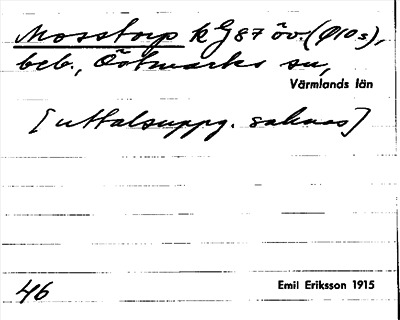 Mosstorp k G 87 öv. (Ø10s),
beb., Östmarks sn,
Värmlands län
[uttalsuppg. saknas]
46
Emil Eriksson 1915